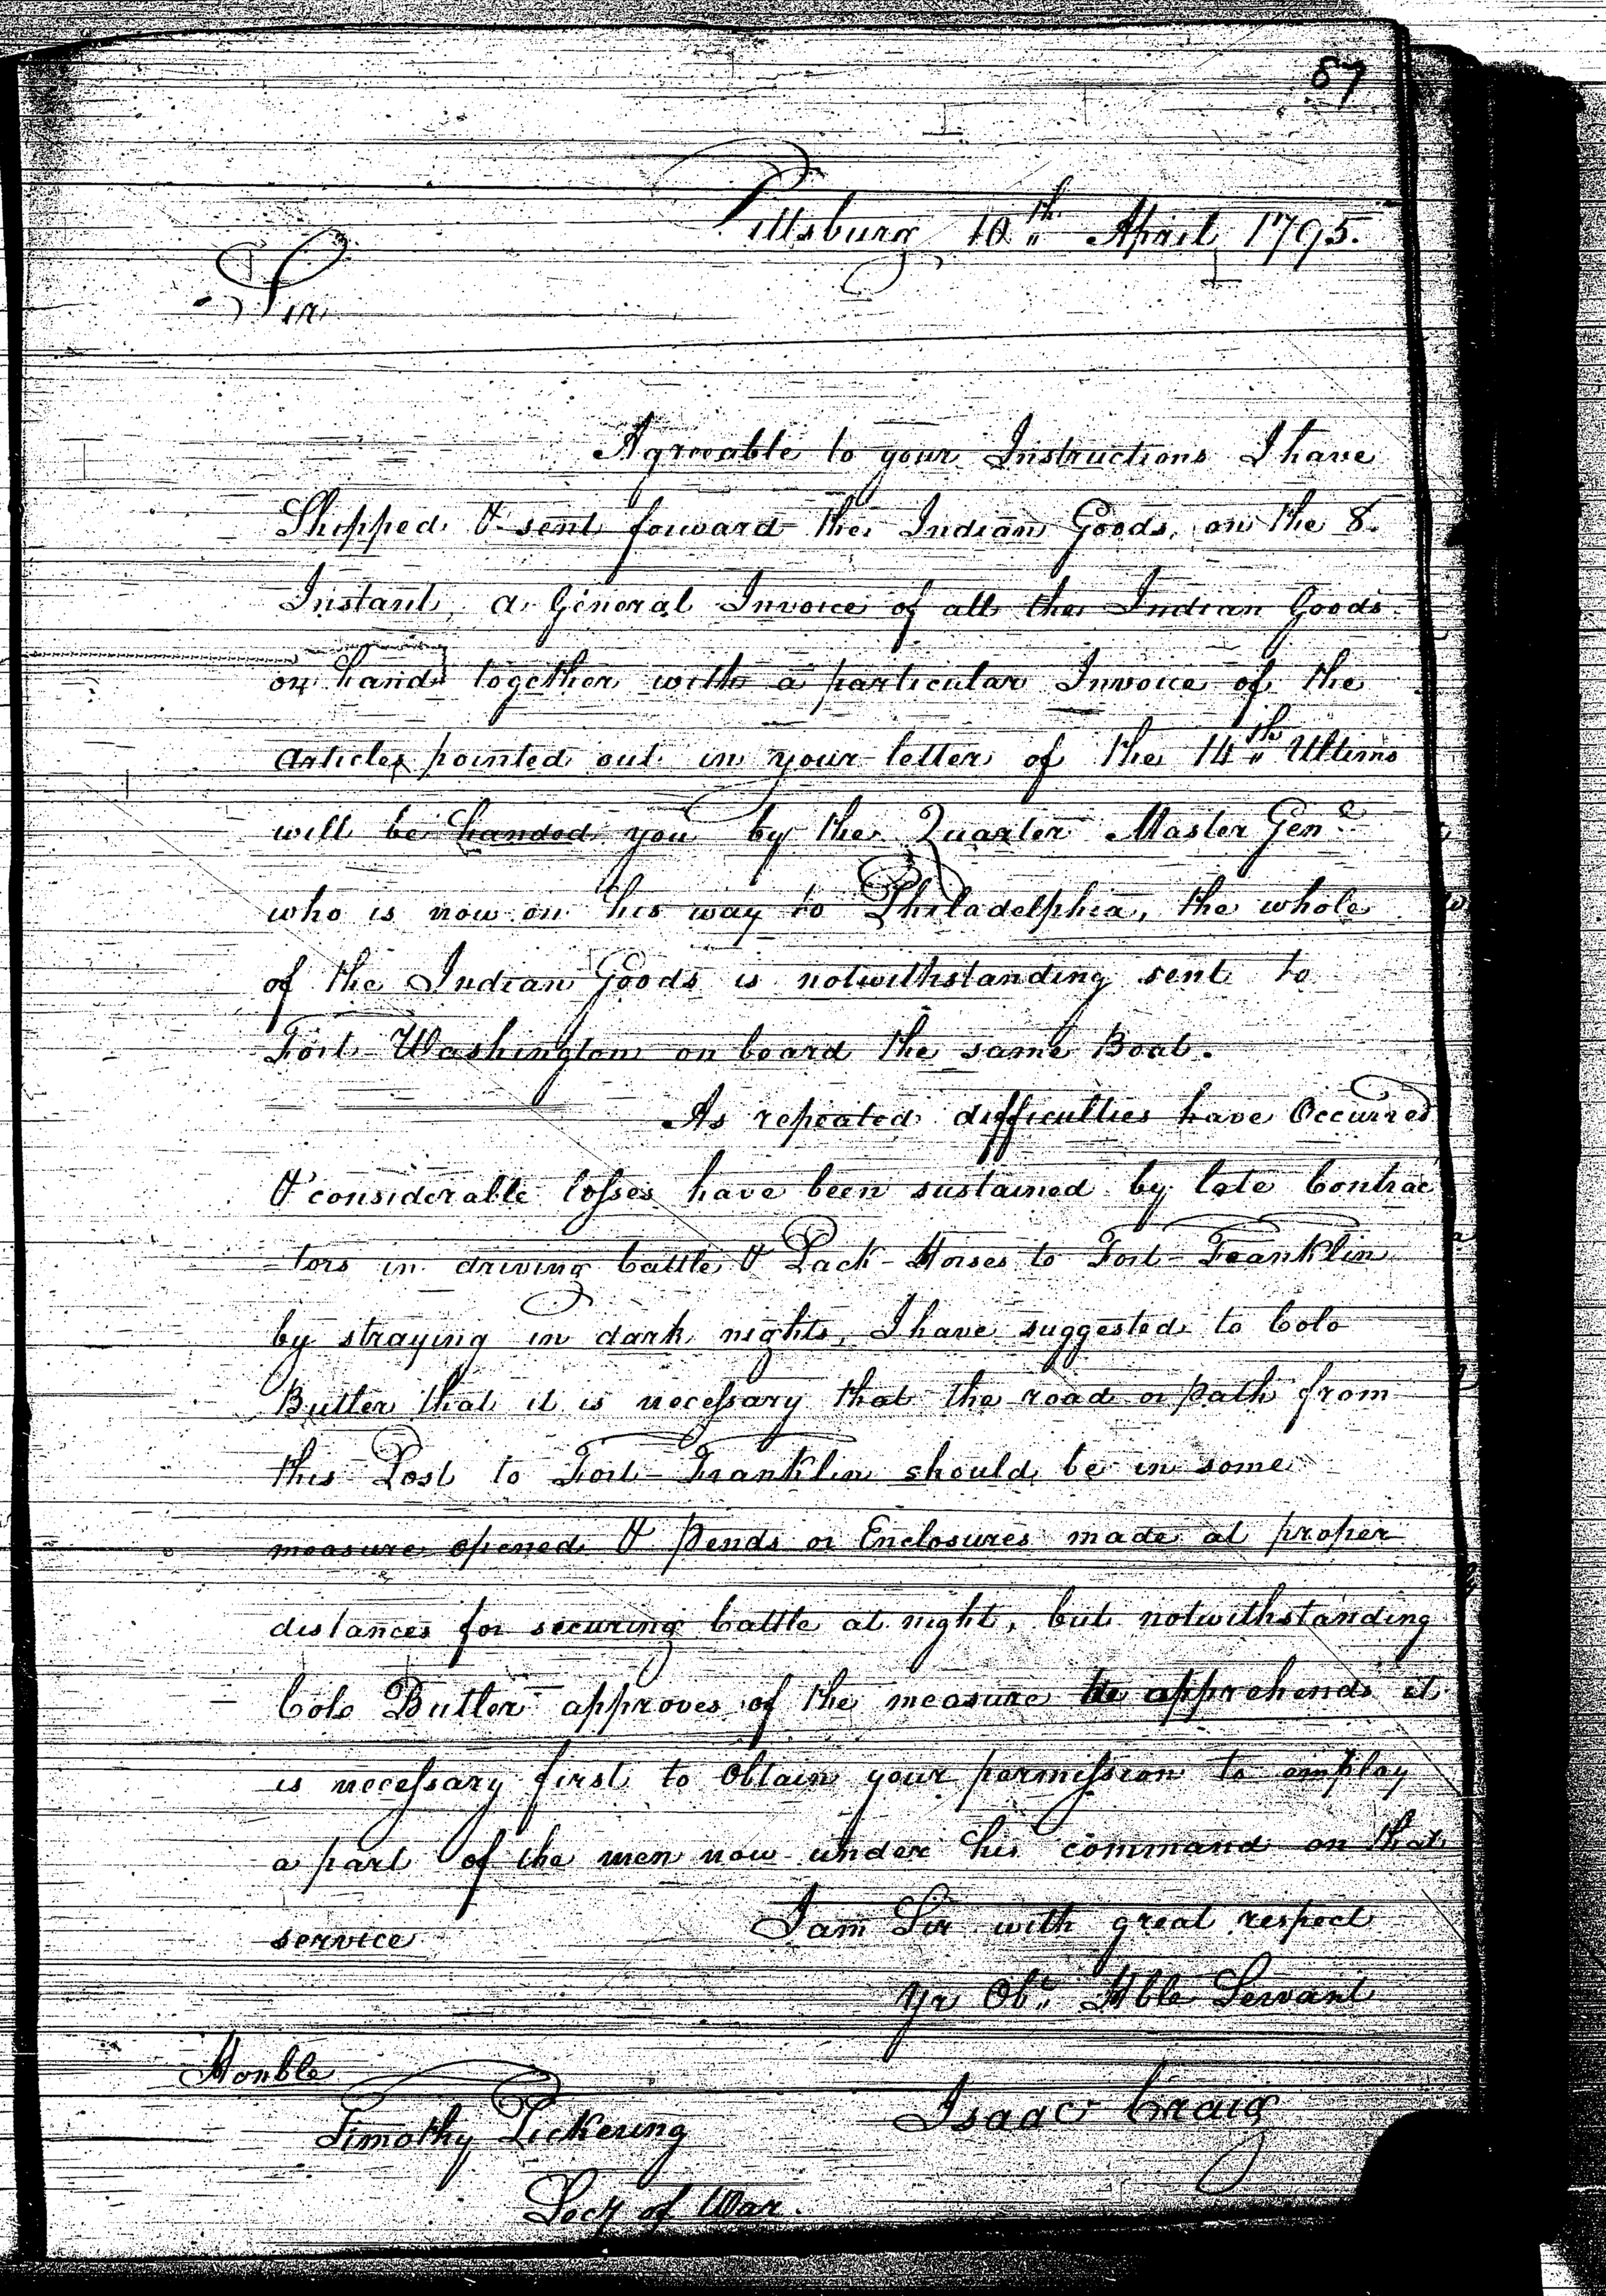 87
Pittsburg 10th April 1795.
Sir
Agreeable to your Instructions I have
Shipped & sent forward the Indian Goods, on the 8.
Instant, a General Invoice of all the Indian Goods
on hand together with a particular Invoice of the
Articles pointed out in your letter of the 14th Ultimo
will be handed you by the Quarter Master Genl
who is now on his way to Philadelphia, the whole
of the Indian Goods is notwithstanding sent to
Fort Washington on board the same Boat.
As repeated difficulties have Occurred
& considerable losses have been sustained by late Contrac
-tors in driving Cattle & Pack-Horses to Fort-Franklin
by straying in dark nights, I have suggested to Colo
Butler that it is necessary that the road or path from
this Post to Fort-Franklin should be in some
measure opened & Pends or Enclosures made at proper
distances for securing Cattle at night, but notwithstanding
Colo Butler approves of the measure he apprehends it
is necessary first to Obtain your permission to employ
a part of the men now under his command on that
service
I am Sir with great respect
Yr Obt Hble Servant
Isaac Craig
Honble
Timothy Pickering
Secy of War.